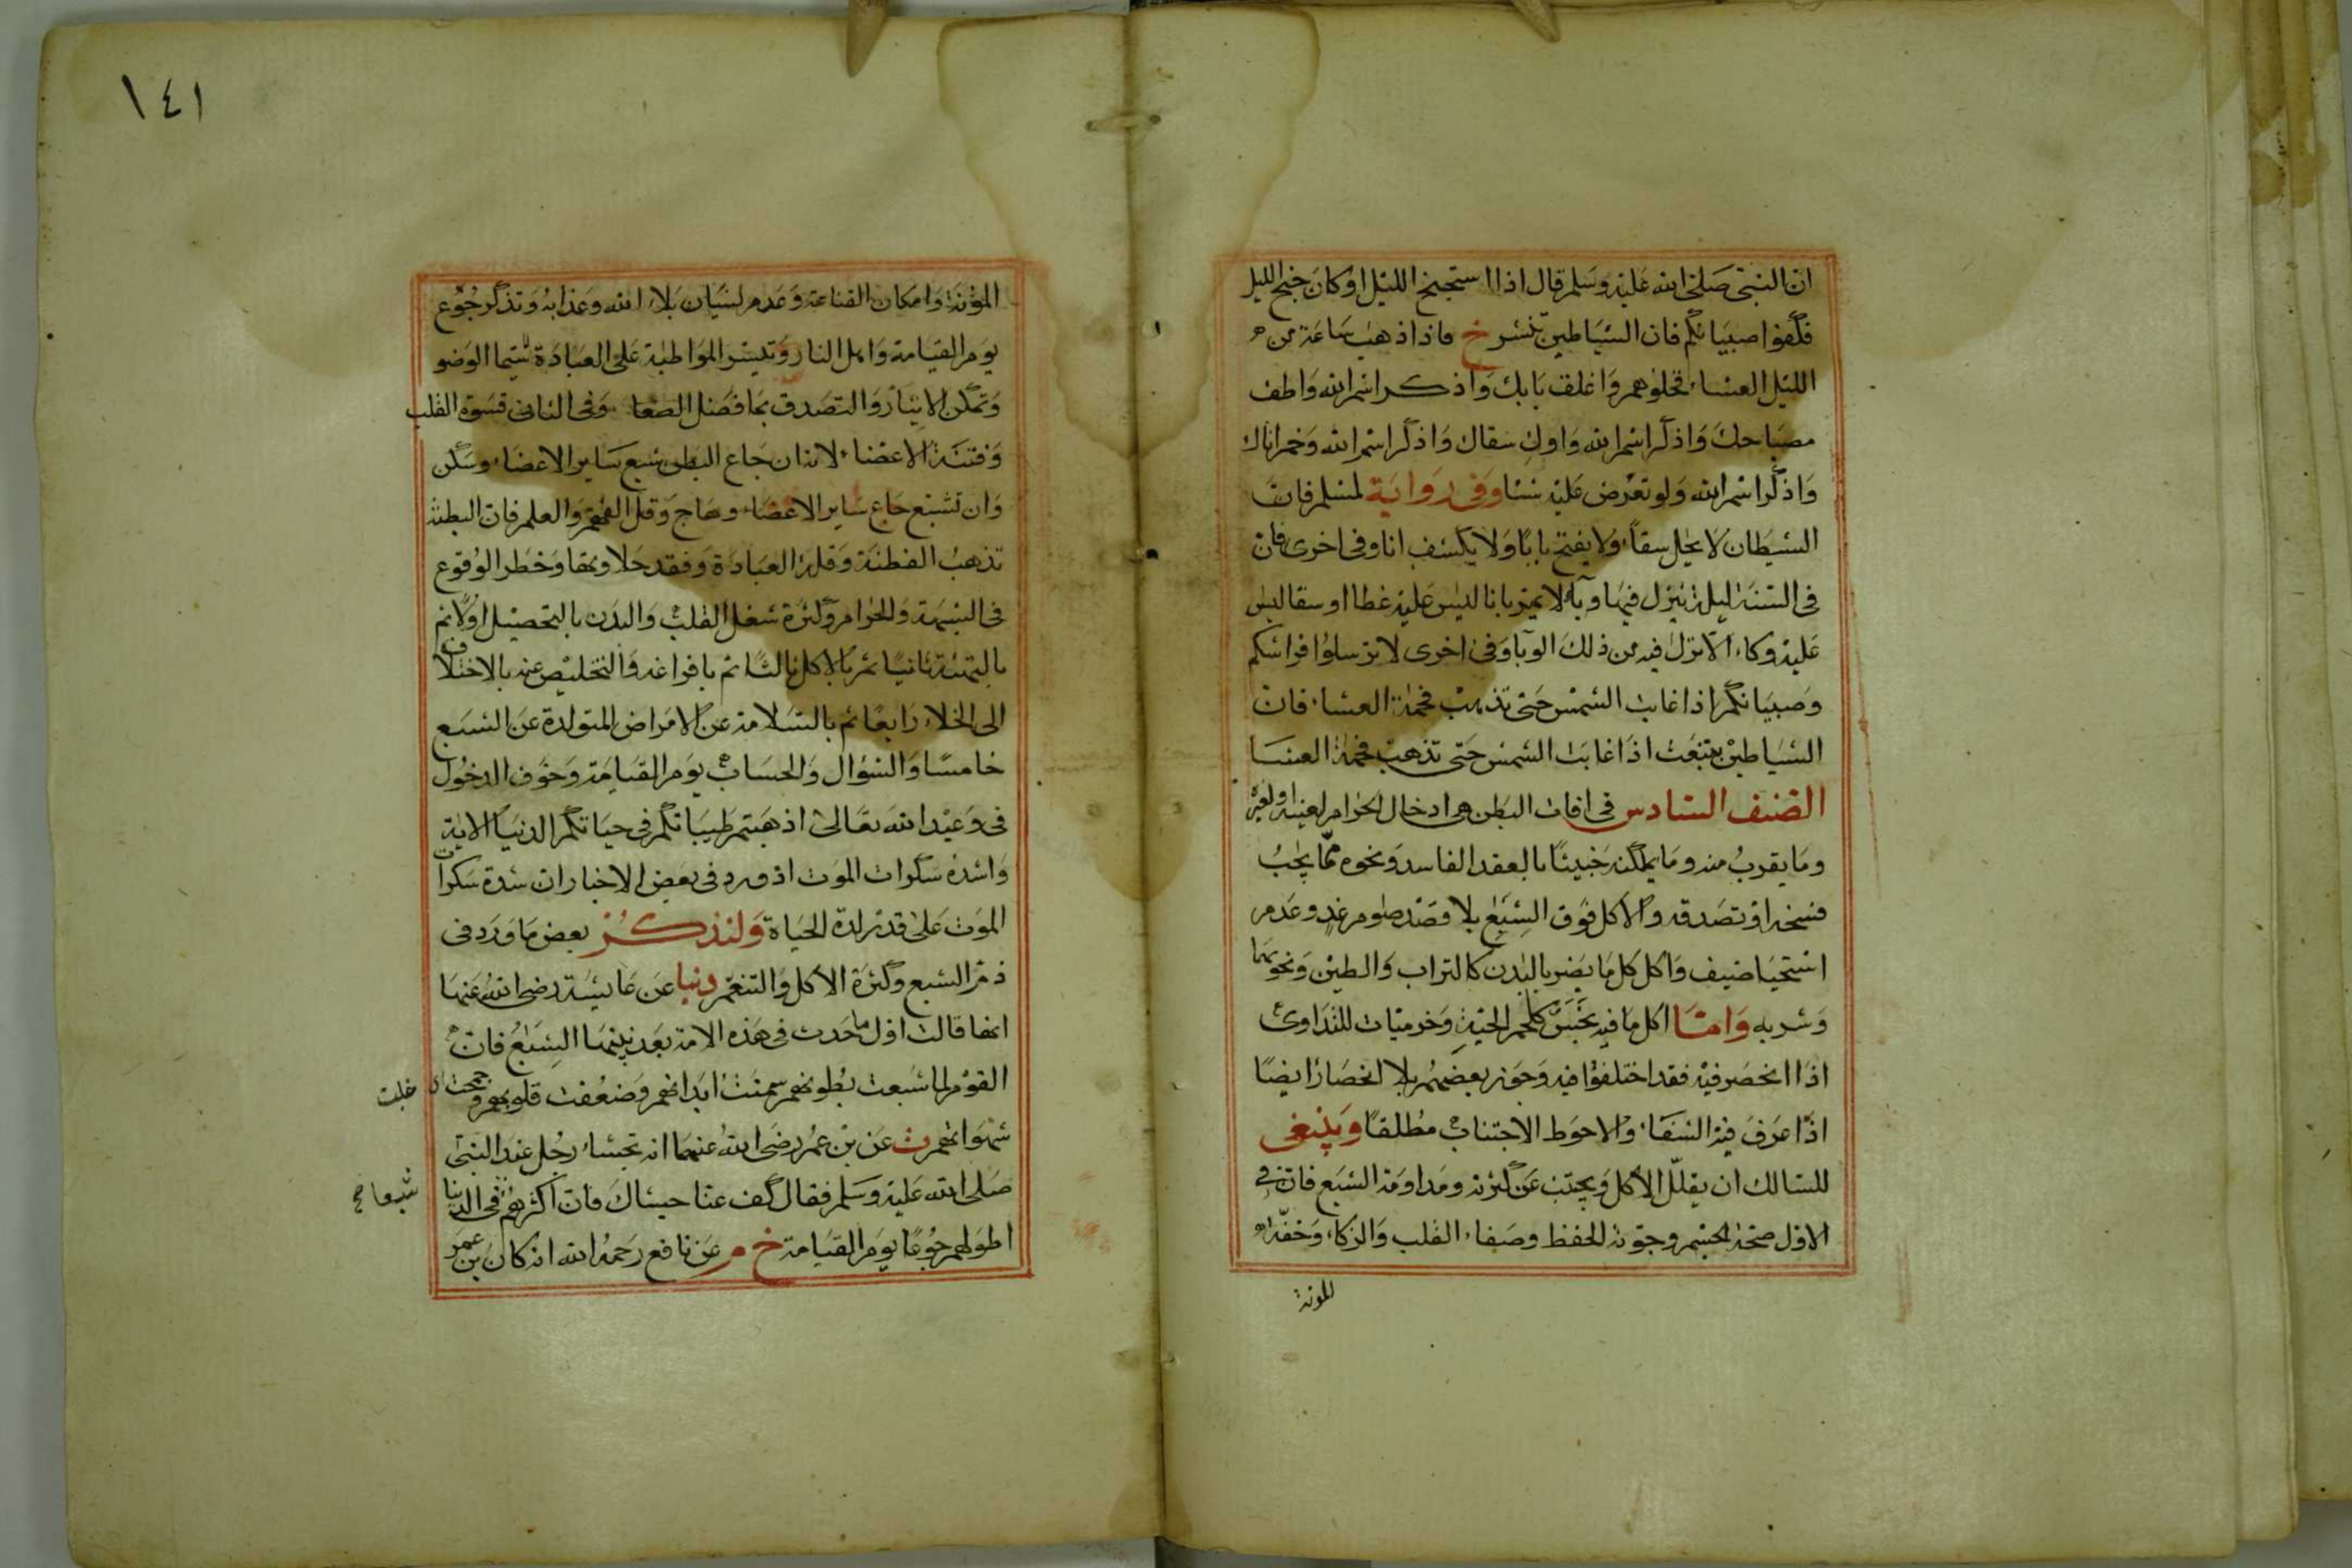 ان النبي صلى الله عليه وسلم قال اذا استجنح الليل او كان جنح الليل
فكفوا صبيانكم فان الشياطين تنتشر خ فاذا ذهب ساعة من
الليل العشاء فخلوهم واغلق بابك واذكر اسم الله واطف
مصباحك واذكر اسم الله واوك سقاك واذكر اسم الله وخمر اناك
واذكر اسم الله ولو تعرض عليه شيئا وفي رواية لمسلم فان
الشيطان لا يحل سقاً ولا يفتح باباً ولا يكشف انا وفي اخرى فان
في السنة ليلة ينزل فيها وبآء لا يمر بانا ليس عليه غطا او سقا ليس
عليه وكاء الا نزل فيه من ذلك الوبا وفي اخرى لا ترسلوا فواشيكم
وصبيانكم اذا غابت الشمس حتى تذهب فحمة العشاء فان
الشياطين تنبعث اذا غابت الشمس حتى تذهب فحمة العشا
الصنف السادس في افات البطن هي ادخال الحرام لعينه او لغيره
وما يقرب منه وما يملكه خبيثا بالعقد الفاسد ونحوه مما يجب
فسخه او تصدقه والاكل فوق الشبع بلا قصد صوم غد وعدم
استحيا ضيف واكل كل ما يضر بالبدن كالتراب والطين ونحوهما
وشربه واما اكل ما فيه نجس كلحم الحية وخرميات للتداوي
اذا انحصر فيه فقد اختلفوا فيه وجوز بعضهم بلا انحصار ايضا
اذا عرف فيه الشفاء والاحوط الاجتناب مطلقا وينبغي
للسالك ان يقلل الاكل ويجتنب عن كثرته ومداومة الشبع فان في
الاول صحة الجسم وجودة الحفظ وصفاء القلب والذكاء وخفة
للمؤنة
١٤١
المؤنة وامكان القناعة وعدم نسيان بلاء الله وعذابه وتذكر جوع
يوم القيامة واهل النار وتيسر المواظبة على العبادة سيما الوضو
وتمكن الايثار والتصدق بما فضل الطعام وفي الثاني قسوة القلب
وفتنة الاعضاء لانه ان جاع البطن شبع ساير الاعضاء وسكن
وان شبع جاع ساير الاعضاء وهاج وقل الفهم والعلم فان البطنة
تذهب الفطنة وقلة العبادة وفقد حلاوتها وخطر الوقوع
في الشبهة والحرام وكثرة شغل القلب والبدن بالتحصيل اولا ثم
بالتهيئة ثانيا ثم بالاكل ثالثا ثم بافراغه والتخليص عنه بالاختلاف
الى الخلاء رابعا ثم بالسلامة عن الامراض المتولدة عن الشبع
خامسا والسؤال والحساب يوم القيامة وخوف الدخول
في وعيد الله تعالى اذهبتم طيباتكم في حياتكم الدنيا الاية
واشدة سكرات الموت اذ ورد في بعض الاخبار ان شدة سكرات
الموت على قدر لذة الحياة ولنذكر بعض ما ورد في
ذم الشبع وكثرة الاكل والتنعم دنيا عن عايشة رضي الله عنها
انها قالت اول ما حدث في هذه الامة بعد نبيها الشبع فان
القوم لما شبعت بطونهم سمنت ابدانهم وضعفت قلوبهم وجمحت اى غلبت
شهواتهم ت عن بن عمر رضي الله عنهما انه تجشاء رجل عند النبي
صلى الله عليه وسلم فقال كف عنا جشاك فان اكثرهم في الدنيا شبعا صح
اطولهم جوعا يوم القيامة خ م عن نافع رحمه الله انه كان بن عمر